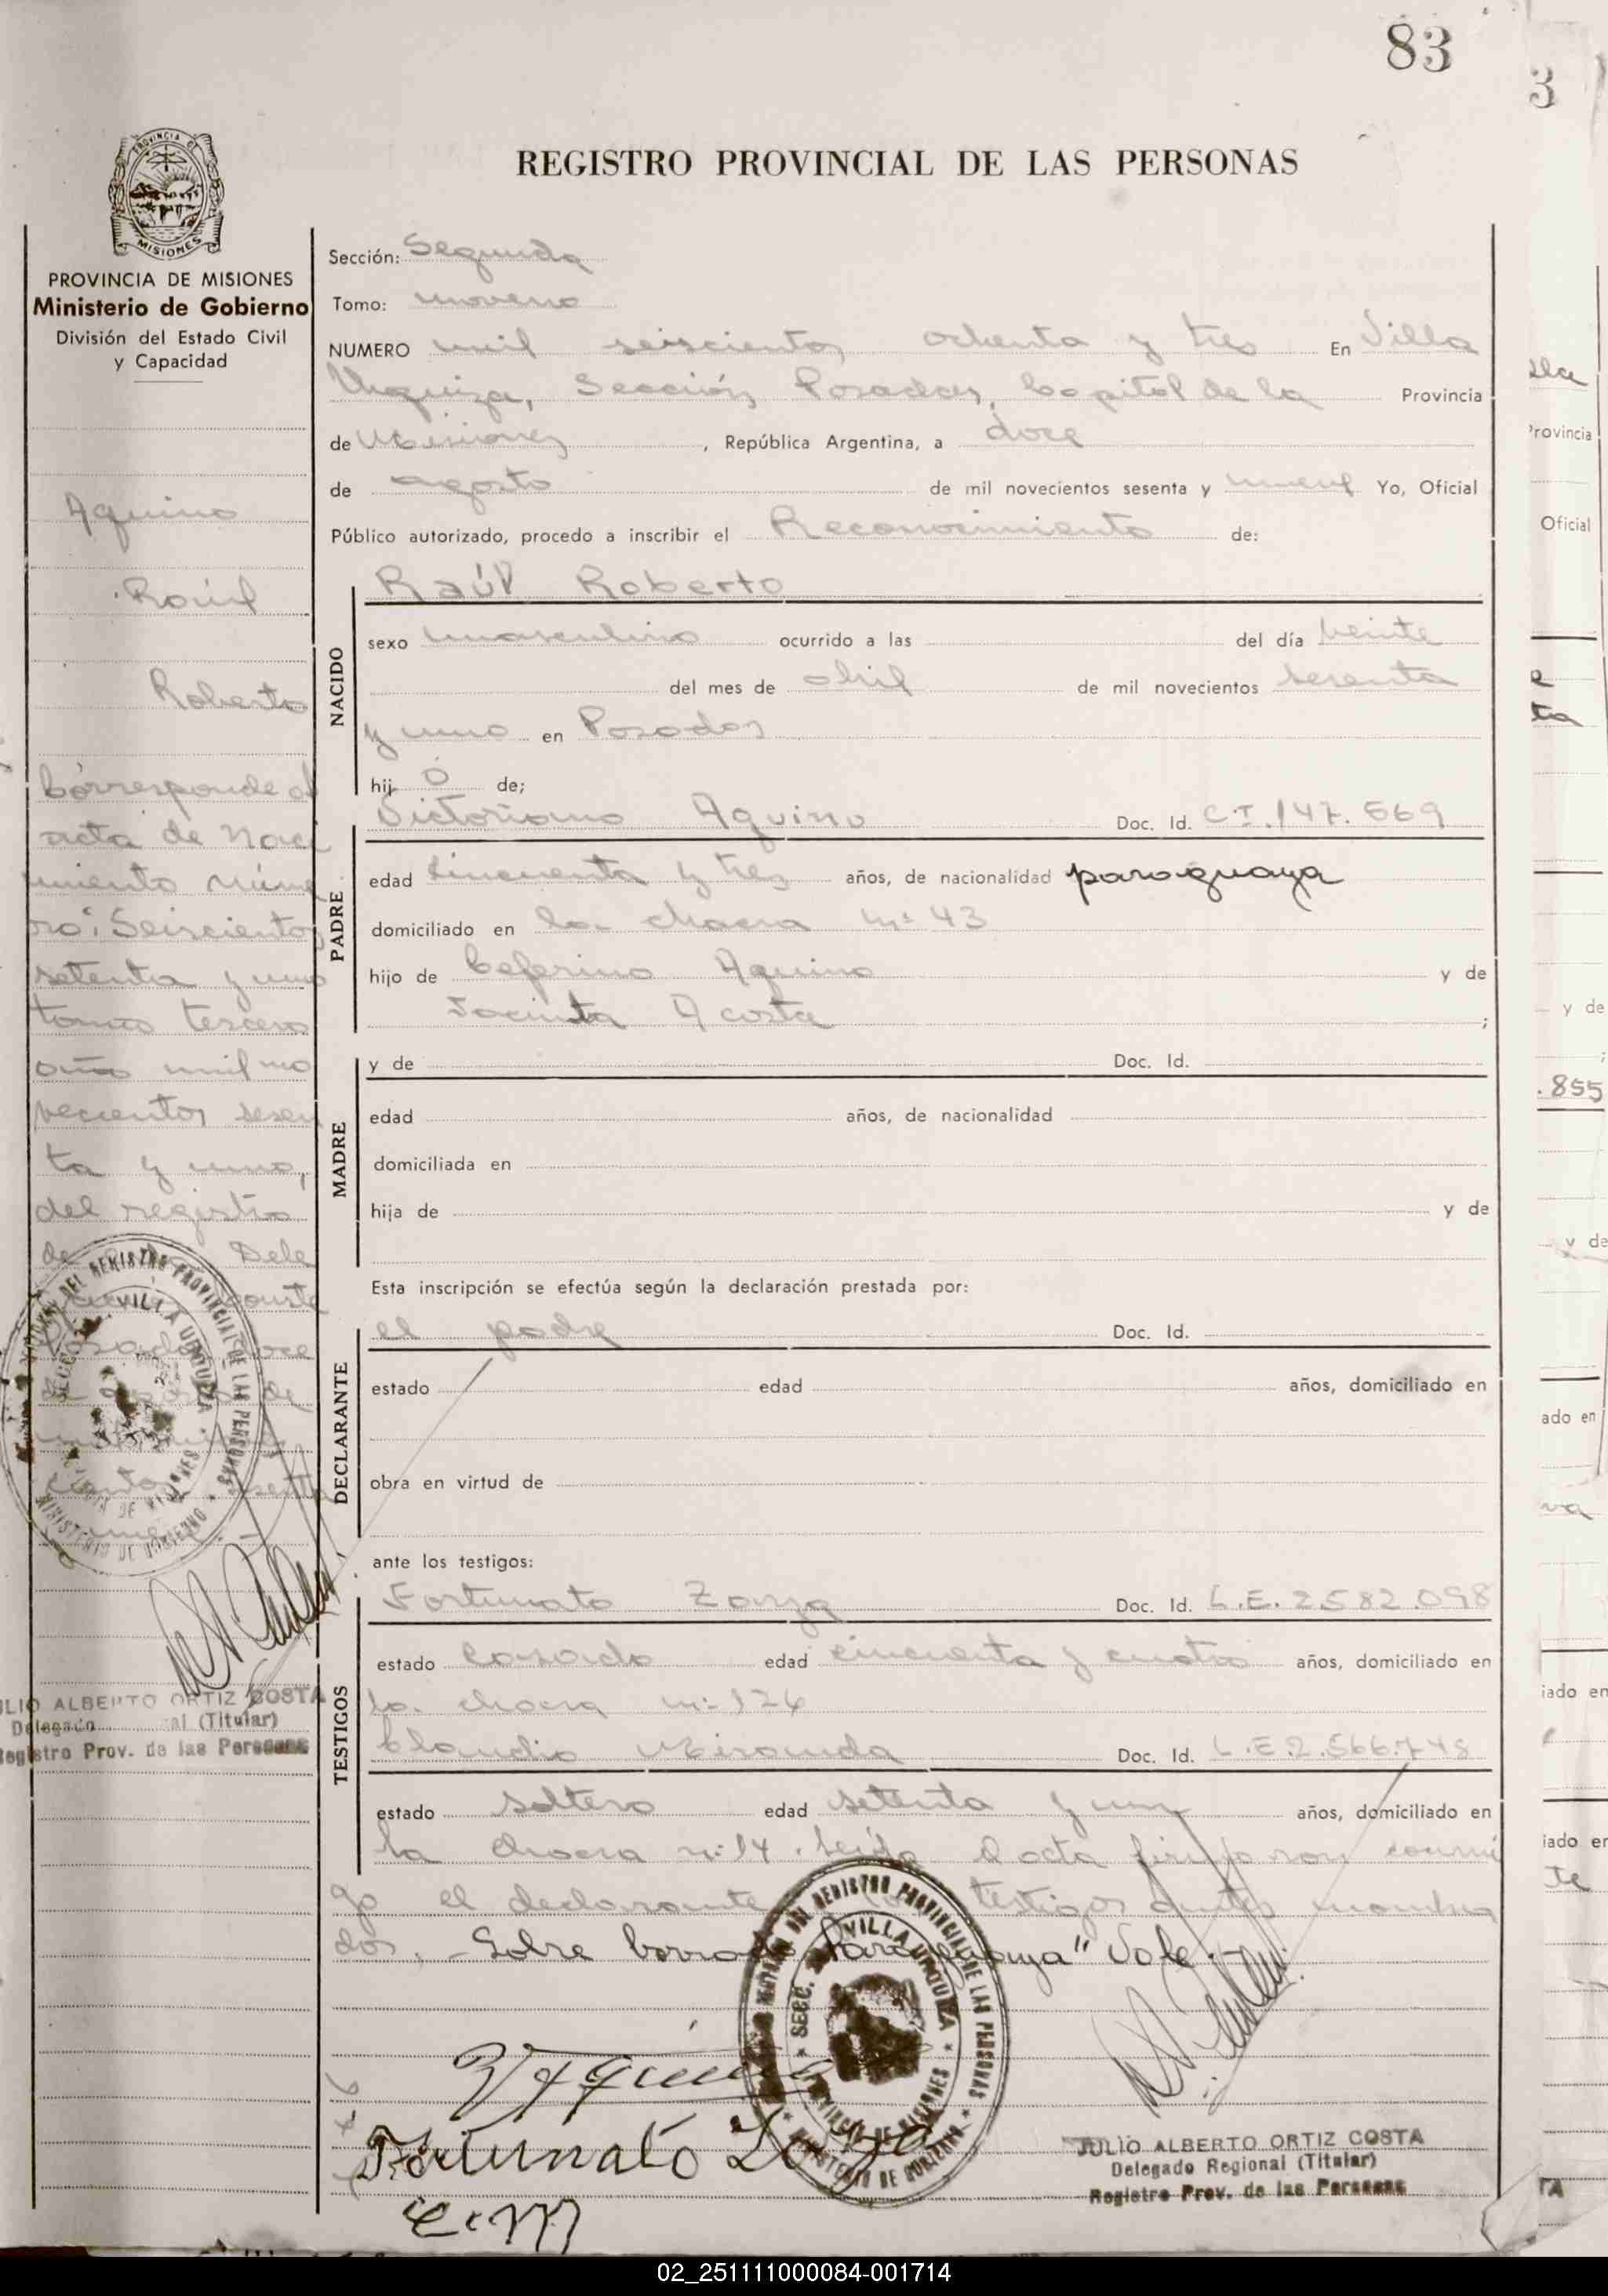 83
3
REGISTRO PROVINCIAL DE LAS PERSONAS
PROVINCIA DE MISIONES
Ministerio de Gobierno
División del Estado Civil
y Capacidad
Aquino
Raúl
Roberto
Corresponde al
acta de Naci
miento núme
ro: Seiscientos
setenta y uno
tomo tercero
año mil no
vecientos sesen
ta y uno,
del registro
de Dele
conste
Posadas doce
de agosto de
JULIO ALBERTO ORTIZ COSTA
Delegado al (Titular)
Registro Prov. de las Personas
Sección: Segunda
Tomo: noveno
NUMERO mil seiscientos ochenta y tres En Villa
Urquiza, Sección Posadas, Capital de la Provincia
de Misiones, República Argentina, a doce
de agosto de mil novecientos sesenta y nueve Yo, Oficial
Público autorizado, procedo a inscribir el Reconocimiento de:
NACIDO
Raúl Roberto
sexo masculino ocurrido a las del día veinte
del mes de abril de mil novecientos sesenta
y uno en Posadas
hij o de;
PADRE
Victoriano Aquino Doc. Id. C.I. 147.569
edad cincuenta y tres años, de nacionalidad paraguaya
domiciliado en la chacra nº 43
hijo de Ceferino Aquino y de
Jacinta Acosta ;
MADRE
y de Doc. Id.
edad años, de nacionalidad
domiciliada en
hija de y de
Esta inscripción se efectúa según la declaración prestada por:
DECLARANTE
el padre Doc. Id.
estado edad años, domiciliado en
obra en virtud de
ante los testigos:
TESTIGOS
Fortunato Zoriza Doc. Id. L.E. 2.582.098
estado Casado edad cincuenta y cuatro años, domiciliado en
la chacra nº 126
Claudio Miranda Doc. Id. L.E. 2.566.748
estado soltero edad setenta y uno años, domiciliado en
la chacra nº 14. Leída el acta firmaron conmi
go el declarante testigos antes nombra
dos. - Sobre borrado "Paraguaya" Vale.
VAquino
Fortunato
C.M
JULIO ALBERTO ORTIZ COSTA
Delegado Regional (Titular)
Registro Prov. de las Personas
02_251111000084-001714